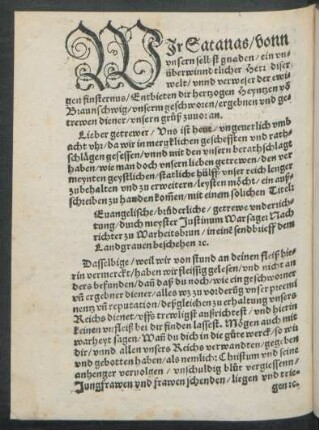 WIr Satanas / vonn
vnsern selbst gnaden / ein vn⸗
überwinntlicher Herr diser⸗
welt / vnnd verweser der ewi⸗
gen finsternus / Entbieten dir hertzogen Heyntzen võ
Braunschwig / vnserm geschwornen / ergebnen vnd ge⸗
trewen diener / vnsern grůß zuuor an.
Lieber getrewer / Vns ist heut / vngeuerlich vmb
acht vhr / da wir in mercklichen geschefften vnd rath⸗
schlägen gesessen / vnnd mit den vnsern berathschlagt
haben / wie man doch vnsern lieben getrewen / den ver
meynten geystlichen / statliche hülff / vnser reich lenger
zubehalten vnd zu erweitern / leysten möcht / ein auß⸗
schreiben zu handen kom̃en / mit einem solichen Titel:
Euangelische / brüderliche / getrewe vnderrich⸗
tung / durch meyster Justinum Warsager Nach
richter zu Warheitsbrun / in eine sendbrieff dem
Landgrauen beschehen ⁊c.
Dasselbige / weil wir von stund an deinen fleiß hier⸗
rin vermerckt / haben wir fleissig gelesen / vnd nicht an
ders befunden / dañ daß du noch / wie ein geschworner
vñ ergebner diener / alles was zu vorderũg vnser preemi
nentz vñ reputation / deßgleichen zu erhaltung vnsers
Reichs dienet / vffs trewligst außrichtest / vnd hierin
keinen vnfleiß bei dir finden lassest. Mögen auch mit
warheyt sagen / Wañ du dich in die gůte werck / so wir
dir / vnnd allen vnsers Reichs verwandten / gegeben
vnd gebotten haben / als nemlich: Christum vnd seine
anhenger veruolgen / vnschuldig blůt vergiessenn /
Jungfrawen vnd frawen schenden / liegen vnd trie⸗
gen ⁊c.